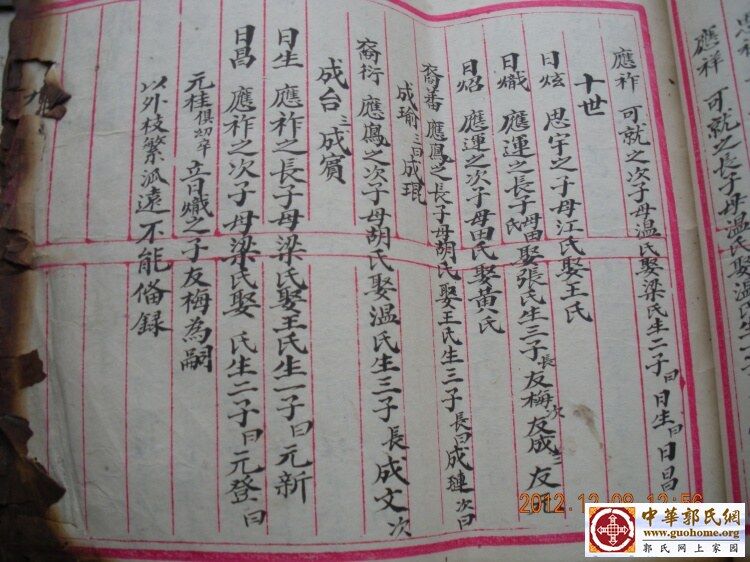 應祥 可就之長子母溫氏娶溫氏生
應祚 可就之次子母溫氏娶梁氏生二子曰日生曰日昌
十世
日炫 思宇之子母江氏娶王氏
日熾 應運之長子母田氏娶張氏生三子長友梅次友成三友
日炤 應運之次子母田氏娶黃氏
裔蕃 應鳳之長子母胡氏娶王氏生三子長曰成璉次曰
成瑜三曰成琨
裔衍 應鳳之次子母胡氏娶溫氏生三子長成文次
成台三成賓
日生 應祚之長子母梁氏娶王氏生一子曰元新
日昌 應祚之次子母梁氏娶 氏生二子曰元登曰
元桂俱幼卒立日熾之子友梅為嗣
以外枝繁派遠不能俻録
2012.12.08 12:56
中華郭氏網
www.guohome.org
郭氏网上家园